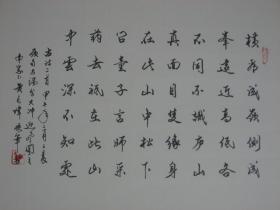 橫看成嶺側成
峯遠近高低各
不同不識庐山
真面目隻緣身
在此山中松下
问童子言師采
药去祇在此山
中雲深不知處
古诗二首